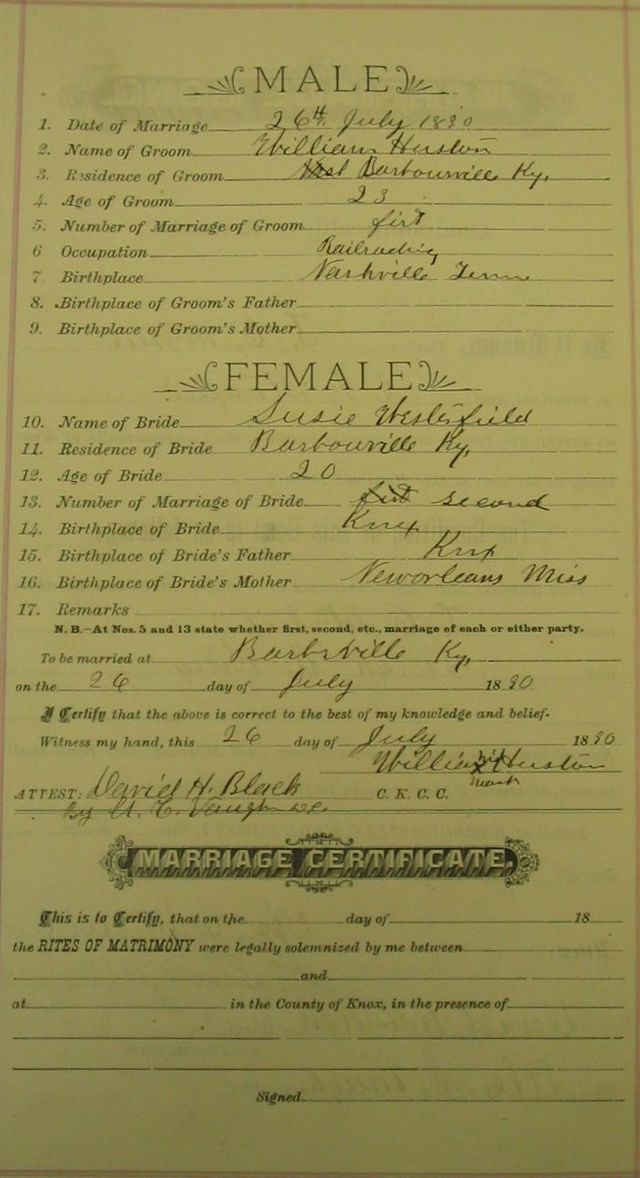 MALE
1. Date of Marriage 26th July 1890
2. Name of Groom William Huston
3. Residence of Groom West Barbourville Ky,
4. Age of Groom 23
5. Number of Marriage of Groom first
6 Occupation Railroading
7 Birthplace Nashville Tenn
8. Birthplace of Groom's Father
9. Birthplace of Groom's Mother
FEMALE
10. Name of Bride Susie Westerfield
11. Residence of Bride Barbourville Ky,
12. Age of Bride 20
13. Number of Marriage of Bride first second
14. Birthplace of Bride Knox
15. Birthplace of Bride's Father Knox
16. Birthplace of Bride's Mother Neworleans Miss
17. Remarks
N. B.—At Nos. 5 and 13 state whether first, second, etc., marriage of each or either party.
To be married at Barbville Ky,
on the 26 day of July 1890
I Certify that the above is correct to the best of my knowledge and belief.
Witness my hand, this 26 day of July 1890
William his Huston
mark
ATTEST: David H. Black C. K. C. C.
By Vaughn DC
MARRIAGE CERTIFICATE.
This is to Certify, that on the day of 18
the RITES OF MATRIMONY were legally solemnized by me between
and
at in the County of Knox, in the presence of
Signed